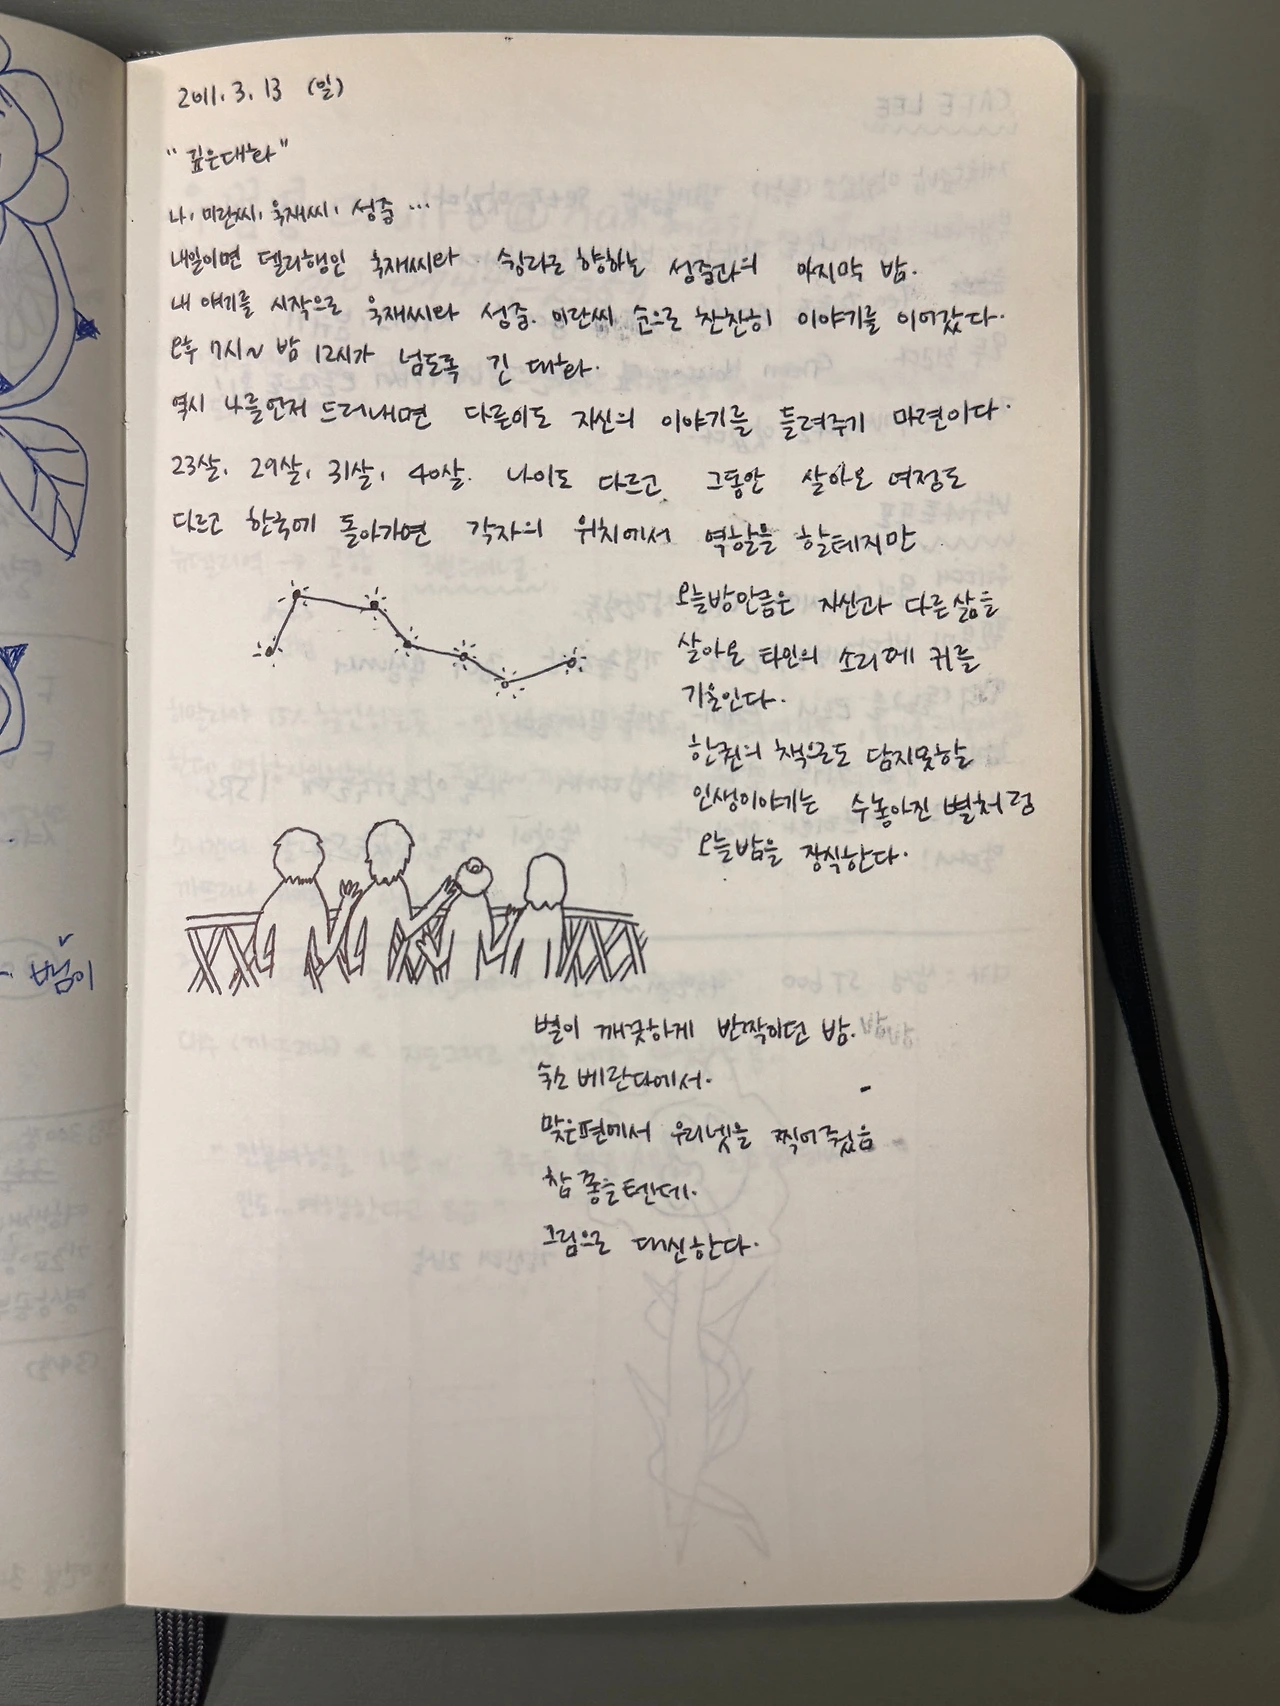 2011. 3. 13 (일)
"깊은대화"
나, 미란씨, 욱재씨, 성중 ...
내일이면 델리행인 욱재씨와 향하는 성중과의 마지막 밤.
내 얘기를 시작으로 욱재씨와 성중. 미란씨 순으로 찬찬히 이야기를 이어갔다.
오후 7시~ 밤 12시가 넘도록 긴 대화.
역시 나를먼저 드러내면 다른이도 자신의 이야기를 들려주기 마련이다.
23살, 29살, 31살, 40살. 나이도 다르고 그동안 살아온 여정도
다르고 한국에 돌아가면 각자의 위치에서 역할을 할테지만
오늘밤만큼은 자신과 다른삶을
살아온 타인의 소리에 귀를
기울인다.
한권의 책으로도 담지못할
인생이야기는 수놓아진 별처럼
오늘밤을 장식한다.
별이 깨끗하게 반짝이던 밤.
숙소 베란다에서.
맞은편에서 우리넷을 찍어줬음
참 좋을텐데.
그림으로 대신한다.